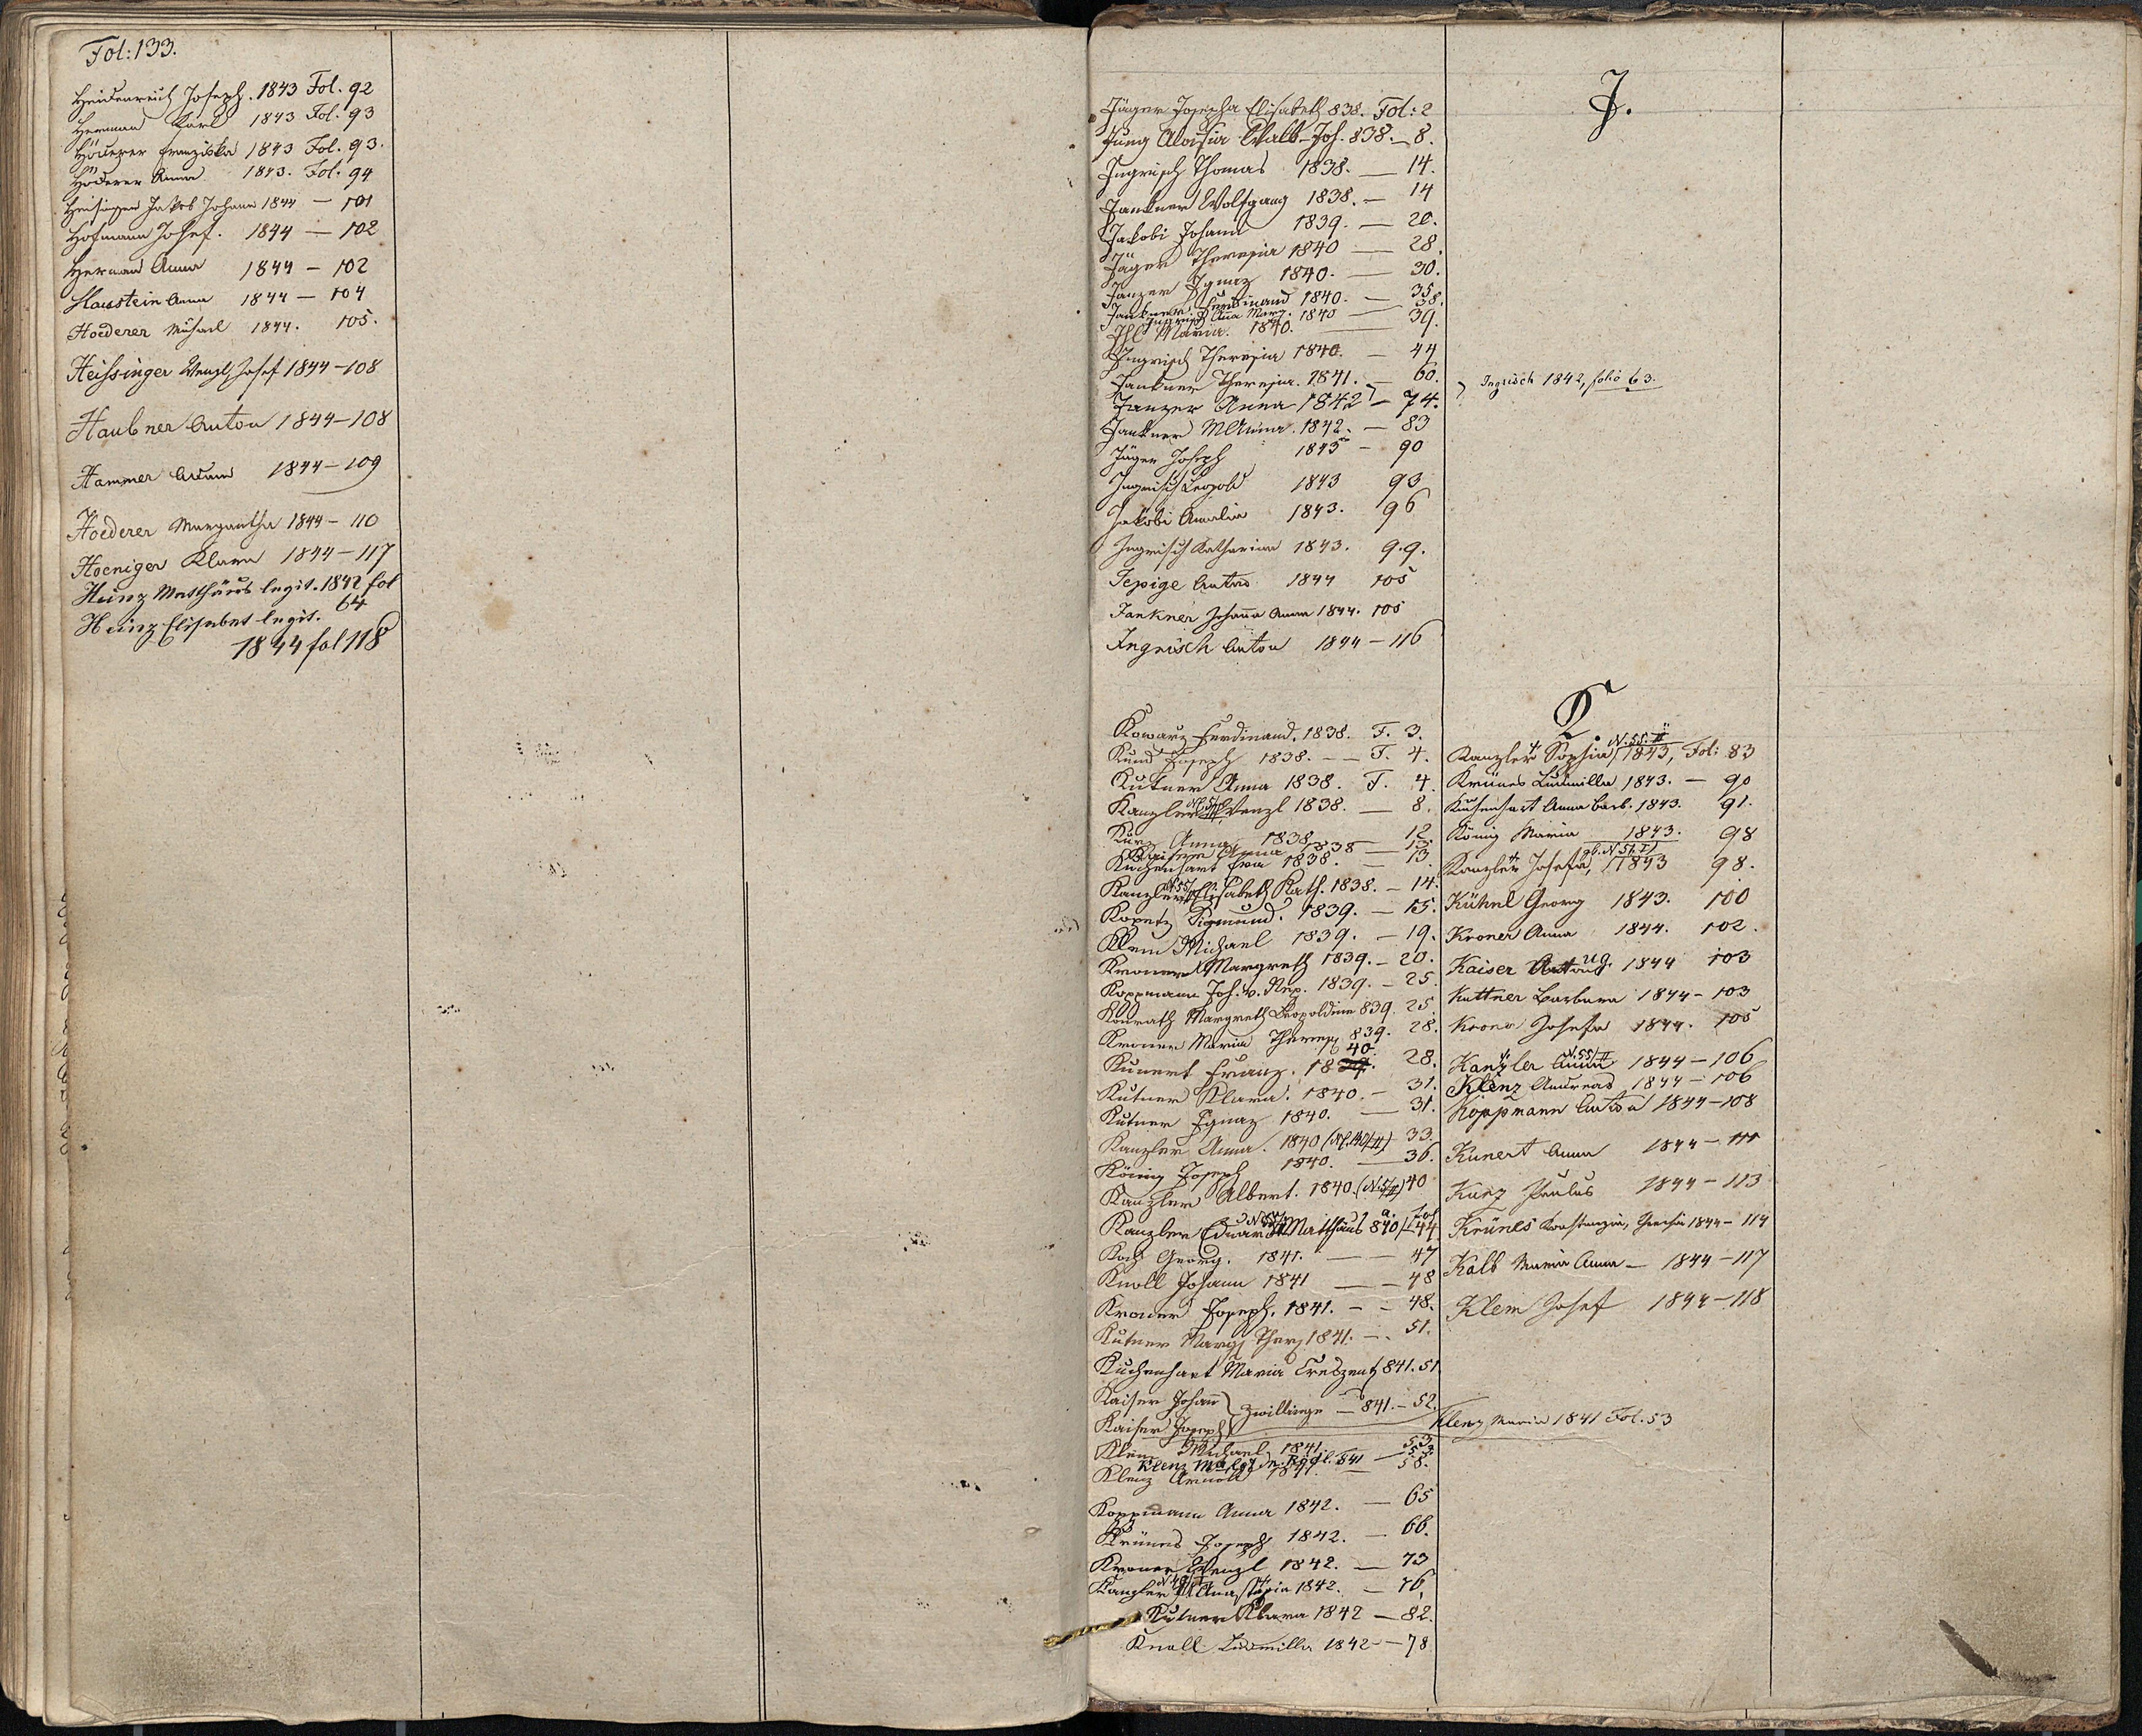 Fol: 133.
Heidenreich Joseph. 1843 Fol. 92
Herman Karl 1843 Fol. 93
Höderer Franziska 1843 Fol. 93.
Höderer Anna 1843. Fol. 94
Heisinger Jakob Johann 1844 — 101
Hofmann Josef. 1844 — 102
Herman Anna 1844 — 102
Haustein Anna 1844 — 104
Hoederer Michael 1844. 105.
Heissinger Wenzl Josef 1844 — 108
Haubner Anton 1844 — 108
Hammer Adam 1844 — 109
Hoederer Margaretha 1844 — 110
Hoeniger Klara 1844 — 117
Heinz Matthäus legit. 1842 fol
64
Heinz Elisabet legit.
1844 fol 118
J.
Jäger Josepha Elisabeth 838. Fol: 2
Jung Aloisia Walb. Joh. 838. — 8.
Ingrisch Thomas 1838. — 14.
Jankner Wolfgang 1838. — 14
Jakobi Johann 1839. — 20.
Jäger Theresia 1840 — 28.
Janzer Ignaz 1840. — 30.
Jankner Ferdinand 1840. — 35
Ingrisch Ana Marg. 1840 — 38.
Ihl Maria. 1840. — 39.
Ingrisch Theresia 1840. — 44
Jankner Theresia. 1841. — 60.
Ingrisch 1842, folio 63.
Janzer Anna 1842 — 74.
Jankner M Anna. 1842. — 83
Jäger Joseph 1843 — 90
Ingrisch Leopold 1843 93
Jakobi Amalia 1843. 96
Ingrisch Katharina 1843. 99.
Jepige Anton 1844 105
Jankner Johana Anna 1844. 105
Ingrisch Anton 1844 — 116
K.
Kowarz Ferdinand. 1838. F. 3.
Kund Joseph 1838. — F. 4.
Kutner Anna 1838. F. 4.
Kanzler Wenzl 1838. — 8.
Kurz Anna 1838. — 12
Kaiser Anna 1838 — 13.
Kuchenhart Eva 1838. — 13.
Kanzler Elisabeth Kath. 1838. — 14.
Kopetz Sigmund. 1839. — 15.
Klem Michael 1839. — 19.
Kroner Margreth 1839. — 20.
Koppmann Joh. v. Nep. 1839. — 25.
Konrath Margreth Leopoldine 839. 25.
Kroner Maria Theres 839. 28.
Kunert Franz. 1840. 28.
Kutner Klara. 1840. — 31.
Kutner Ignaz 1840. — 31.
Kanzler Anna. 1840 33.
König Joseph 1840. — 36.
Kanzler Albert. 1840. 40
Kanzler Eduard Matthäus 840 fol 44
Koch Georg. 1841. — 47
Knoll Johann 1841 — 48
Kroner Joseph. 1841. — 48.
Kutner Marg Ther 1841. — 51.
Kuchenhart Maria Creszent 841. 51
Kaiser Johan } Zwillinge — 841. — 52.
Kaiser Joseph
Klem Michael 1841. 53
Klenz Arnold 1841. — 58.
Koppmann Anna 1842. — 65
Krünes Joseph 1842. — 66.
Kroner Wenzl 1842. — 73
Kanzler Anastasia 1842. — 76
Kutner Klara 1842 — 82.
Knoll Ludmilla 1842 — 78
N. 55. II
Kanzler Sophia, 1843, Fol: 83
Krünes Ludmilla 1843. — 90
Kuchenhart Anna Barb. 1843. 91.
König Maria 1843. 98
Kanzler Josefa, 1843 98.
Kühnl Georg 1843. 100
Kroner Anna 1844. 102.
Kaiser 1844 103
Kuttner Barbara 1844 — 103
Krona Josefa 1844. 105
Kanzler Anna 1844 — 106
Klenz Andreas 1844 — 106
Koppmann Anton 1844 — 108
Kunert Anna 1844 — 111
Kurz Paulus 1844 — 113
Krünes Konstanzia, Theresia 1844 — 114
Kalb Maria Anna — 1844 — 117
Klem Josef 1844 — 118
Klenz Maria 1841 Fol. 53